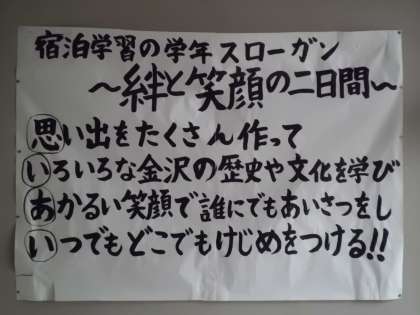 宿泊学習の学年スローガン
～絆と笑顔の二日間～
思い出をたくさん作って
いろいろな金沢の歴史や文化を学び
あかるい笑顔で誰にでもあいさつをし
いつでもどこでもけじめをつける!!